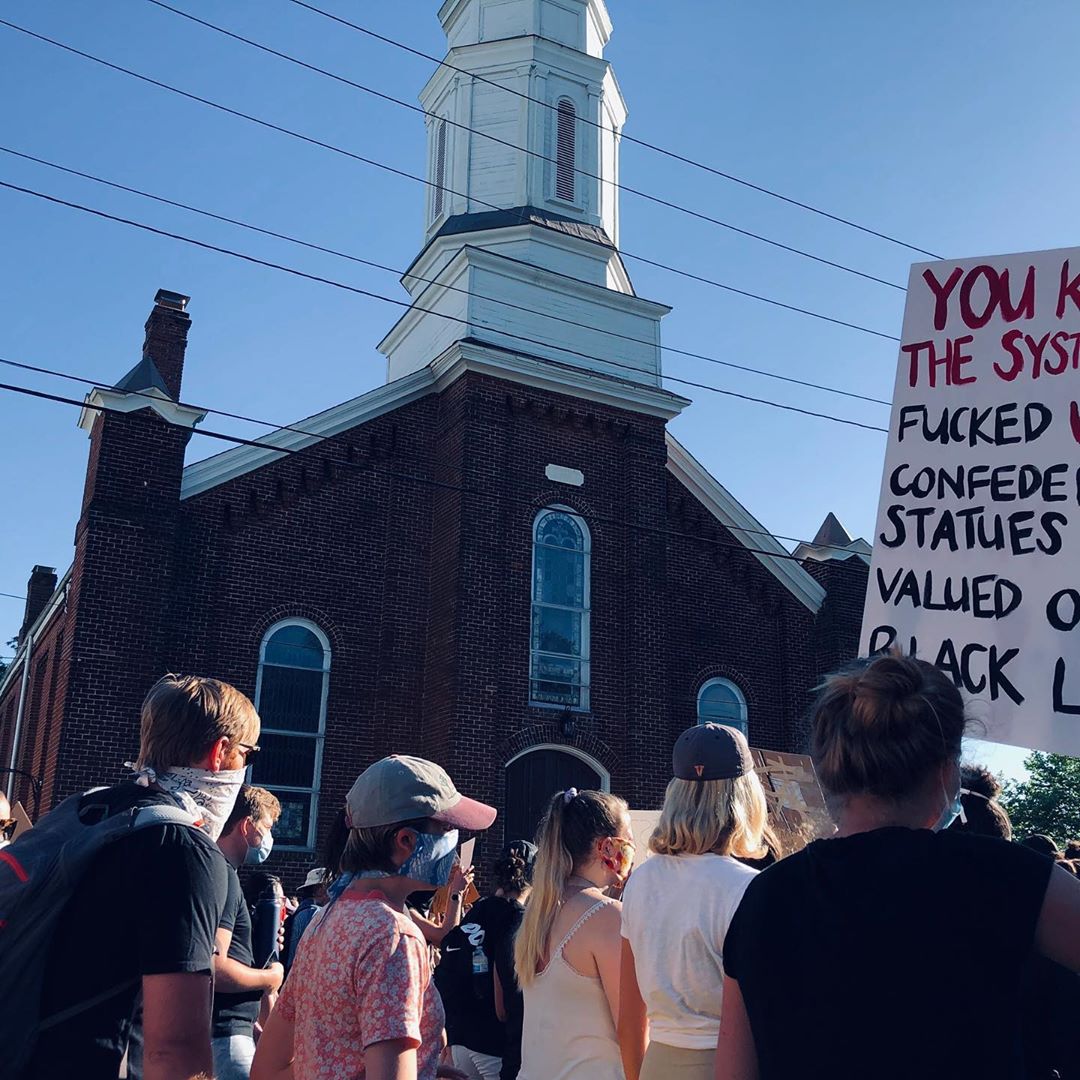 YOU K
THE SYST
FUCKED U
CONFEDE
STATUES
VALUED O
BLACK L